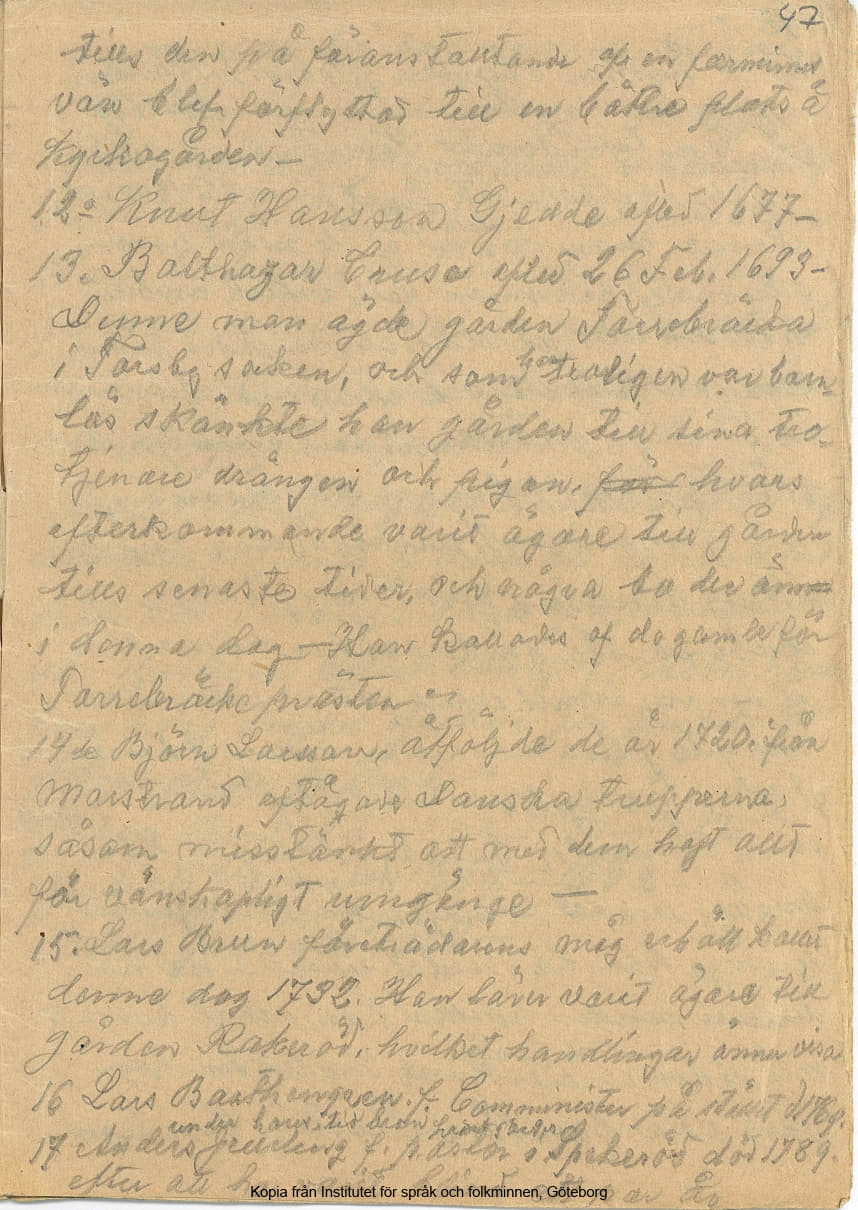 47
tills den på föranstaltande af en fornminnes
vän blef förflyttad till en bättre plats å
kyrkogården —
12. Knut Hansson Gjedde afled 1677 —
13. Balthazar Cruse afled 26 Feb. 1693 —
Denne man ägde gården Torrebräcka
i Torsby socken, och som han troligen var barn-
lös skänkte han gården till sina tro-
tjenare drängen och pigan, för hvars
efterkommande varit ägare till gården
tills senaste tider, och några bo der ännu
i denna dag — Han kallades af de gamle för
Torrebräcke prästen
14de Björn Larsson, åtföljde de år 1720 från
Marstrand aftågade Danska trupperna,
såsom misstänkt att med dem haft allt
för vänskapligt umgänge —
15. Lars Brun företrädarens måg erhöll kallet
denne dog 1732. Han lärer varit ägare till
gården Rakeröd, hvilket handlingar ännu visa
16 Lars f. Comminister på
under hans tid blef
17 Anders f. pastor i Spekeröd död 1789.
efter att år
Kopia från Institutet för språk och folkminnen, Göteborg